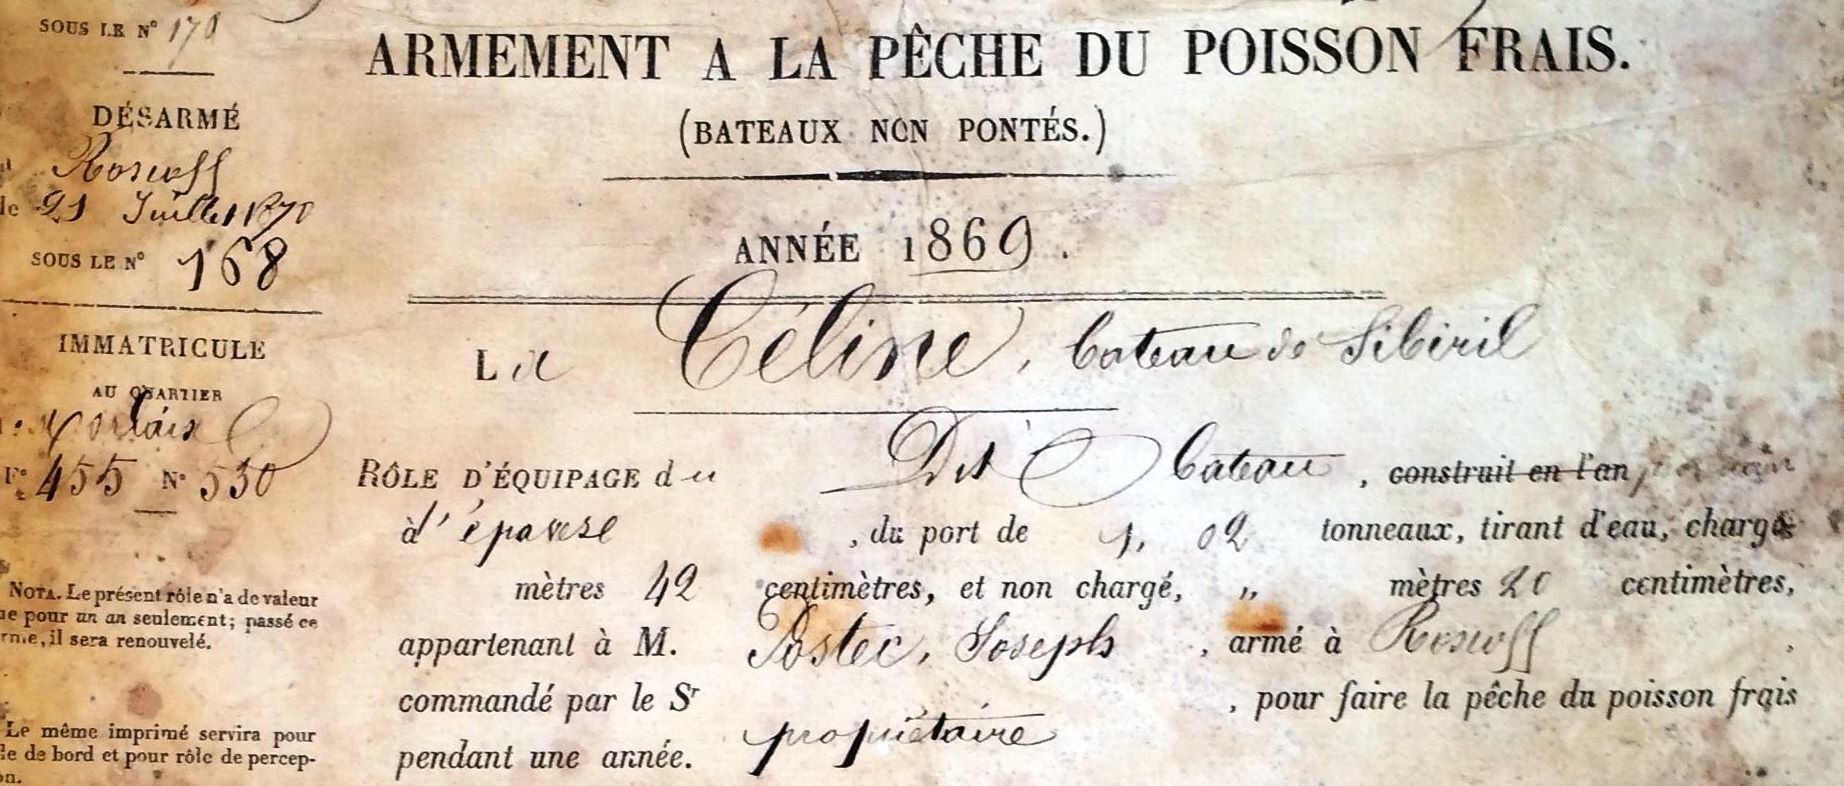 SOUS LE N° 170
DÉSARMÉ
Roscoff
le 21 Juillet 1870
SOUS LE N° 168
IMMATRICULE
AU QUARTIER
Morlaix
F° 455 N° 530
NOTA. Le présent rôle n'a de valeur
ue pour un an seulement; passé ce
rme, il sera renouvelé.
Le même imprimé servira pour
le de bord et pour rôle de percep-
on.
ARMEMENT A LA PÊCHE DU POISSON FRAIS.
(BATEAUX NON PONTÉS.)
ANNÉE 1869.
La Céline, bateau de Sibiril
RÔLE D'ÉQUIPAGE du Dit bateau, construit en l'an
à d'épave, du port de 1, 02 tonneaux, tirant d'eau, chargé
mètres 42 centimètres, et non chargé, „ mètres 20 centimètres,
appartenant à M. Postec, Joseph, armé à Roscoff
commandé par le Sr propriétaire, pour faire la pêche du poisson frais
pendant une année.